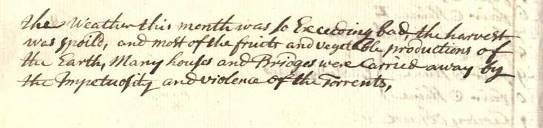 the Weather this month was so Exceeding bad, the harvest
was spoild, and most of the fruits and vegetable productions of
the Earth, Many houses and Bridges were Carried away by
the Impetuosity and violence of the Torrents,